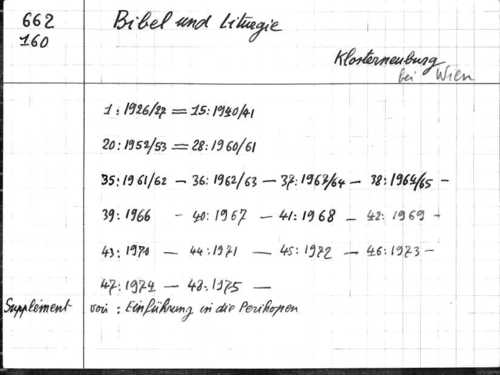 662 Bibel und Liturgie
160
Klosterneuburg
bei Wien
1:1926/27 = 15:1940/41
20:1952/53 = 28:1960/61
35:1961/62 — 36:1962/63 — 37:1963/64 — 38:1964/65 —
39:1966 - 40:1967 — 41:1968 — 42:1969 —
43:1970 — 44:1971 — 45:1972 — 46:1973 —
47:1974 — 48:1975 —
Supplément von : Einführung in die Perikopen